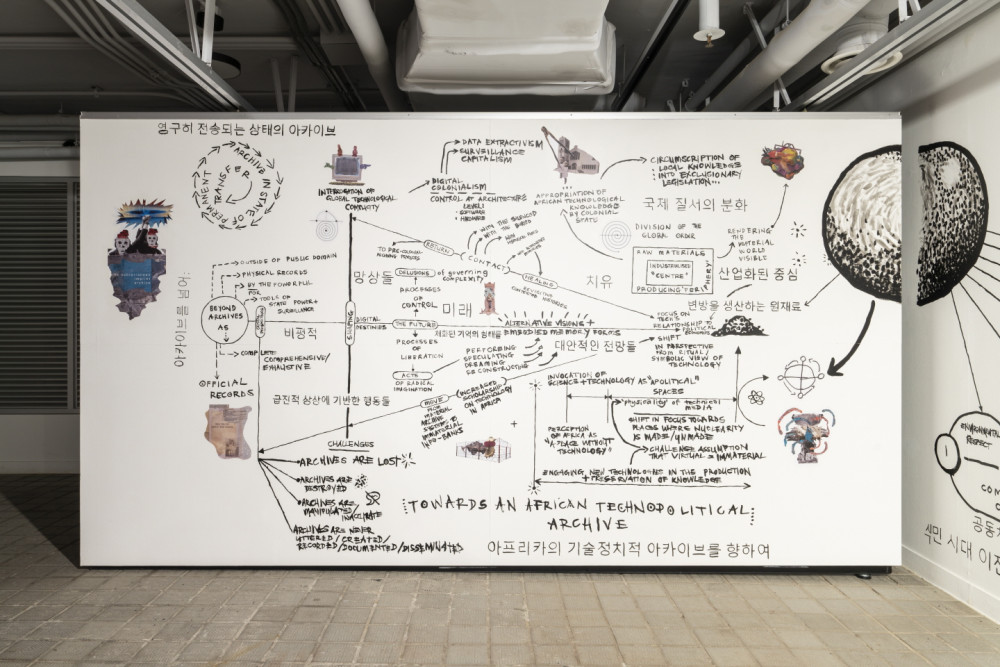 영구히 전송되는 상태의 아카이브
ARCHIVE IN STATE OF PERMANENT TRANSFER
INTERROGATION OF
GLOBAL TECHNOLOGICAL
COMPLICITY
DATA EXTRACTIVISM
SURVEILLANCE
CAPITALISM
DIGITAL
COLONIALISM
CONTROL AT ARCHITECTURE
LEVEL:
• SOFTWARE
• HARDWARE
APPROPRIATION OF
AFRICAN TECHNOLOGICAL
KNOWLEDGE
BY COLONIAL
STATE
CIRCUMSCRIPTION OF
LOCAL KNOWLEDGE
INTO EXCLUSIONARY
LEGISLATION...
국제 질서의 분화
DIVISION OF THE
GLOBAL ORDER
RAW MATERIALS
INDUSTRIALISED
"CENTRE"
PRODUCING PERIPHERY
RENDERING
THE
MATERIAL
WORLD
VISIBLE
산업화된 중심
변방을 생산하는 원재료
OUTSIDE OF PUBLIC DOMAIN
PHYSICAL RECORDS
BY THE POWERFUL
FOR
TOOLS OF
STATE POWER +
SURVEILLANCE
BEYOND
ARCHIVES
AS
비평적
COMPLETE
COMPREHENSIVE/
EXHAUSTIVE
OFFICIAL
RECORDS
RETURN
CONTACT
HEALING
치유
망상들
DELUSIONS of governing
complexity
PROCESSES
OF
CONTROL
미래
DIGITAL
DESTINIES
THE FUTURE
PROCESSES
OF
LIBERATION
ACTS
OF RADICAL
IMAGINATION
ALTERNATIVE VISIONS +
EMBODIED MEMORY FORMS
체화된 기억의 형태들
대안적인 전망들
PERFORMING
SPECULATING
DREAMING
RECONSTRUCTING
FOCUS ON
TECH'S
RELATIONSHIP TO
POLITICAL ECONOMIES
SHIFT
IN PERSPECTIVE
FROM RITUAL/
SYMBOLIC VIEW OF
TECHNOLOGY
급진적 상상에 기반한 행동들
MOVE
FROM MATERIAL
ARCHIVE
SYSTEMS TO
IMMATERIAL
INFO-BANKS
INCREASED
SCHOLARSHIP
ON TECHNOLOGY
IN AFRICA
INVOCATION OF
SCIENCE + TECHNOLOGY AS "APOLITICAL"
SPACES
"physicality" of technical
media
SHIFT IN FOCUS TOWARDS
PLACES WHERE NUCLEARITY
IS MADE/UNMADE
PERCEPTION
OF AFRICA AS
"A PLACE WITHOUT
TECHNOLOGY"
CHALLENGE ASSUMPTION
THAT VIRTUAL = IMMATERIAL
ENGAGING NEW TECHNOLOGIES IN THE PRODUCTION
+ PRESERVATION OF KNOWLEDGE
CHALLENGES
ARCHIVES ARE LOST
ARCHIVES ARE
DESTROYED
ARCHIVES ARE
MANIPULATED/
INACCURATE
ARCHIVES ARE NEVER
UTTERED/CREATED/
RECORDED/DOCUMENTED/DISSEMINATED
TOWARDS AN AFRICAN TECHNOPOLITICAL
ARCHIVE
아프리카의 기술정치적 아카이브를 향하여
ENVIRONMENTAL
RESPECT
1
식민 시대 이전